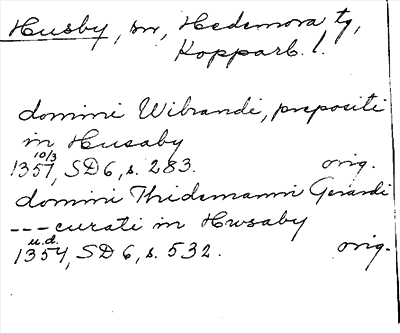 Husby, sn, Hedemora tg,
Kopparb. l.
domini Wibrandi, prepositi
in Husaby
10/3
1357, SD 6, s. 283. orig.
domini Thidemanni Gerardi
--- curati in Hwsaby
u.d.
1354, SD 6, s. 532. orig.